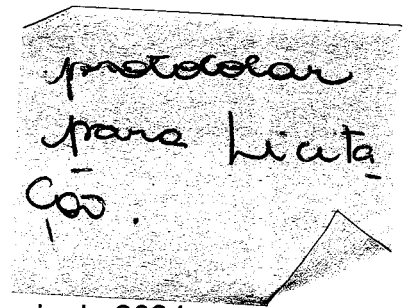 protocolar
para Licita
ção.